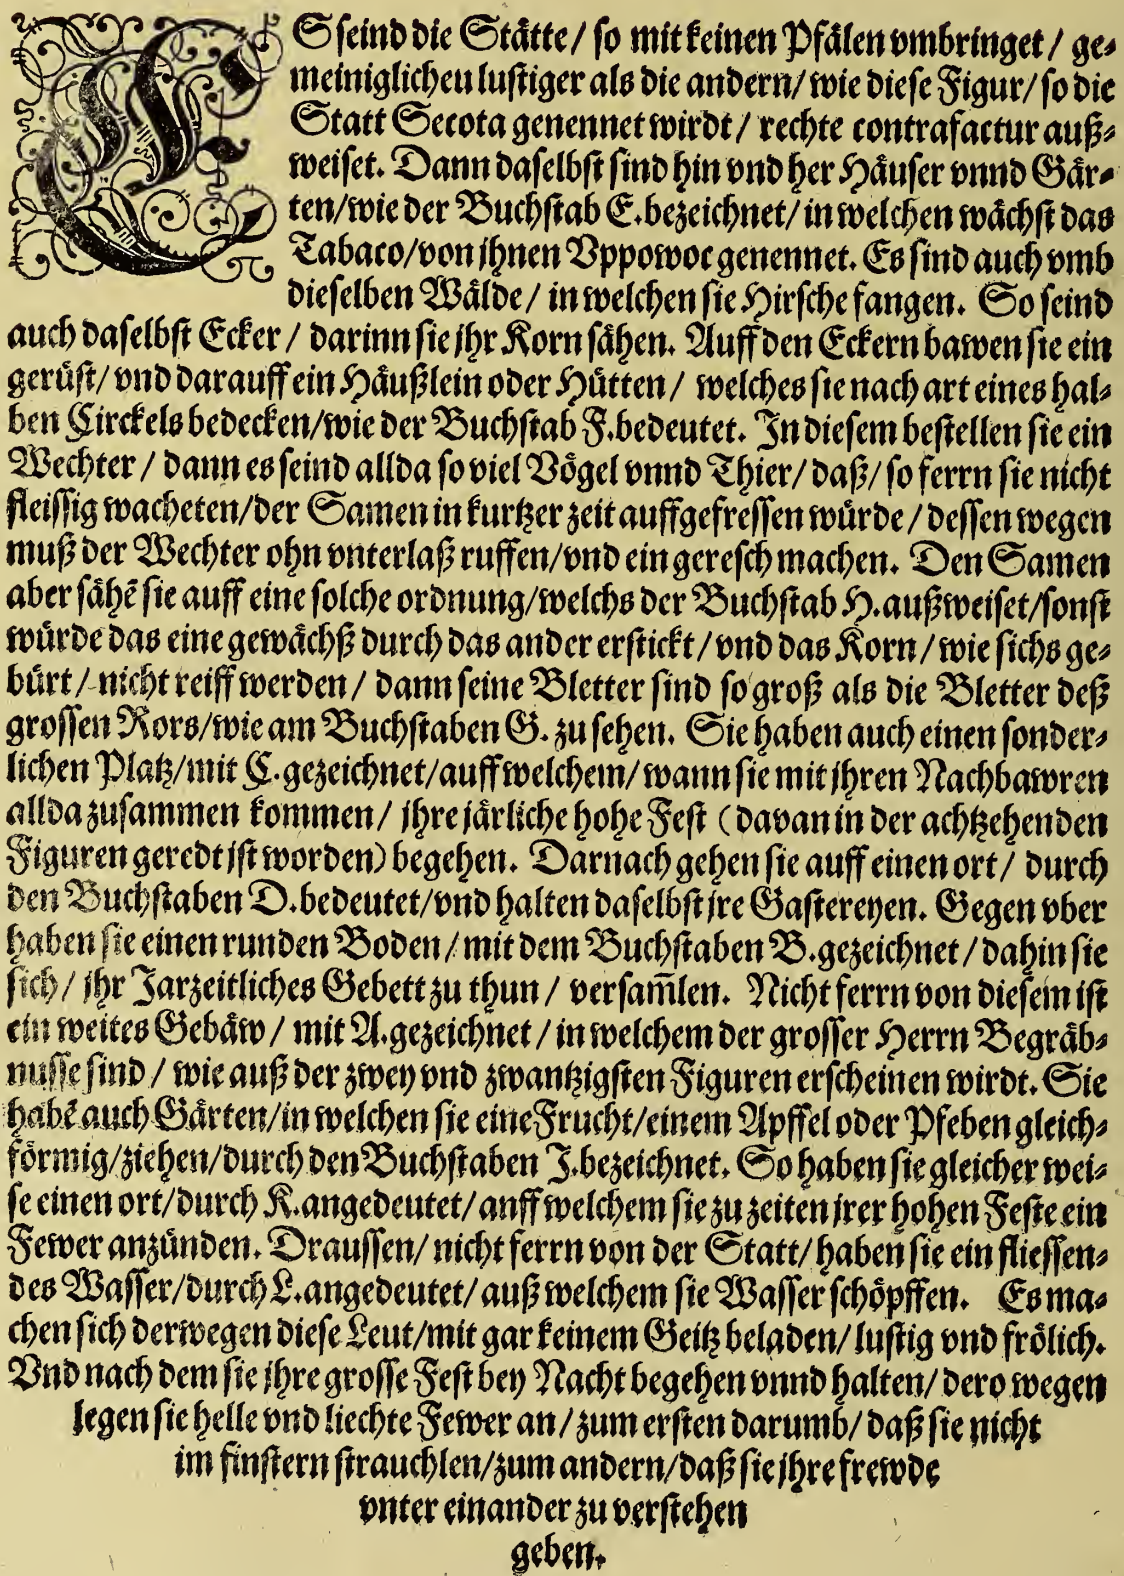 ES seind die Stätte/ so mit keinen Pfälen vmbringet/ ge⸗
meiniglicheu lustiger als die andern/ wie diese Figur/ so die
Statt Secota genennet wirdt/ rechte contrafactur auß⸗
weiset. Dann daselbst sind hin vnd her Häuser vnnd Gär⸗
ten/wie der Buchstab E. bezeichnet/ in welchen wächst das
Tabaco/von jhnen Vppowoc genennet. Es sind auch vmb
dieselben Wälde/ in welchen sie Hirsche fangen. So seind
auch daselbst Ecker/ darinn sie jhr Korn sähen. Auff den Eckern bawen sie ein
gerüst/ vnd darauff ein Häußlein oder Hütten/ welches sie nach art eines hal⸗
ben Circkels bedecken/wie der Buchstab F. bedeutet. In diesem bestellen sie ein
Wechter/ dann es seind allda so viel Vögel vnnd Thier/ daß/ so ferrn sie nicht
fleissig wacheten/der Samen in kurtzer zeit auffgefressen würde/ dessen wegen
muß der Wechter ohn vnterlaß ruffen/vnd ein geresch machen. Den Samen
aber sähē sie auff eine solche ordnung/welchs der Buchstab H. außweiset/sonst
würde das eine gewächß durch das ander erstickt/ vnd das Korn/ wie sichs ge⸗
bürt/ nicht reiff werden/ dann seine Bletter sind so groß als die Bletter deß
grossen Rors/wie am Buchstaben G. zu sehen. Sie haben auch einen sonder⸗
lichen Platz/mit C. gezeichnet/auff welchem/ wann sie mit jhren Nachbawren
allda zusammen kommen/ jhre järliche hohe Fest (davan in der achtzehenden
Figuren geredt ist worden) begehen. Darnach gehen sie auff einen ort/ durch
den Buchstaben D. bedeutet/vnd halten daselbst jre Gastereyen. Gegen vber
haben sie einen runden Boden/ mit dem Buchstaben B. gezeichnet/ dahin sie
sich/ jhr Jarzeitliches Gebett zu thun/ versam̄len. Nicht ferrn von diesem ist
ein weites Gebäw/ mit A. gezeichnet/ in welchem der grosser Herrn Begräb⸗
nusse sind/ wie auß der zwey vnd zwantzigsten Figuren erscheinen wirdt. Sie
habē auch Gärten/in welchen sie eine Frucht/einem Apffel oder Pfeben gleich⸗
förmig/ziehen/durch den Buchstaben J. bezeichnet. So haben sie gleicher wei⸗
se einen ort/durch K. angedeutet/ anff welchem sie zu zeiten jrer hohen Feste ein
Fewer anzünden. Draussen/ nicht ferrn von der Statt/ haben sie ein fliessen⸗
des Wasser/durch L. angedeutet/ auß welchem sie Wasser schöpffen. Es ma⸗
chen sich derwegen diese Leut/mit gar keinem Geitz beladen/ lustig vnd frölich.
Vnd nach dem sie jhre grosse Fest bey Nacht begehen vnnd halten/ dero wegen
legen sie helle vnd liechte Fewer an/ zum ersten darumb/ daß sie nicht
im finstern strauchlen/zum andern/daß sie jhre frewde
vnter einander zu verstehen
geben.